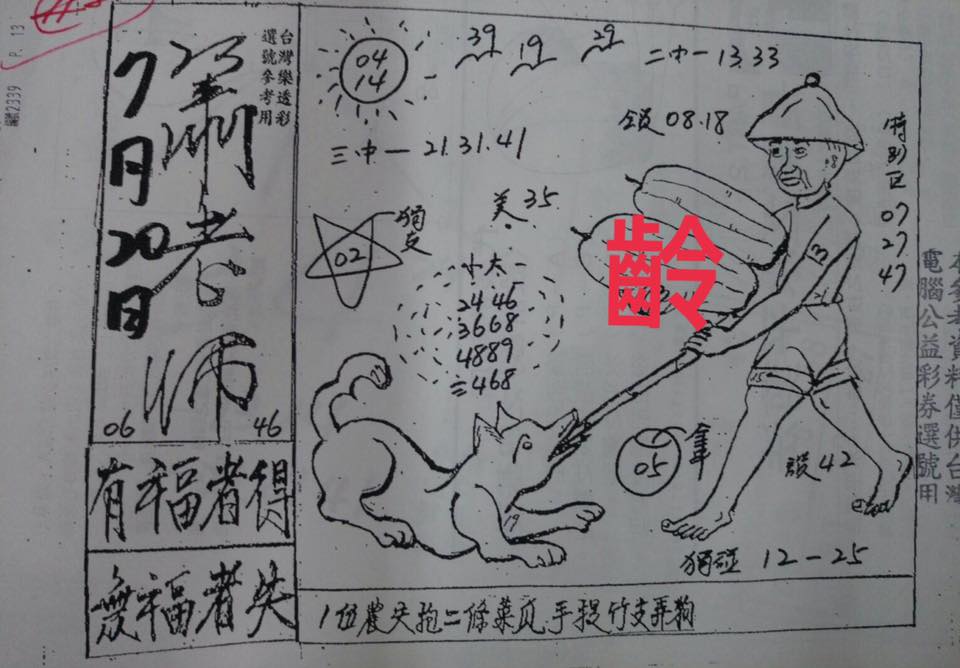 P. 13
編2339
台灣樂透彩
選號參考用
7月20日
蕭老師
06
46
有福者得
無福者失
04
14
39
19
29
二中一 13.33
三中一 21.31.41
08.18
特別区
07
27
47
獨支
02
美 35
小大
24 46
3668
4889
三468
齡
3
15
05
19
頭 42
獨碰 12－25
1位農夫抱二條菜瓜手捉竹支弄狗
本參考資料僅供台灣
電腦公益彩券選號用